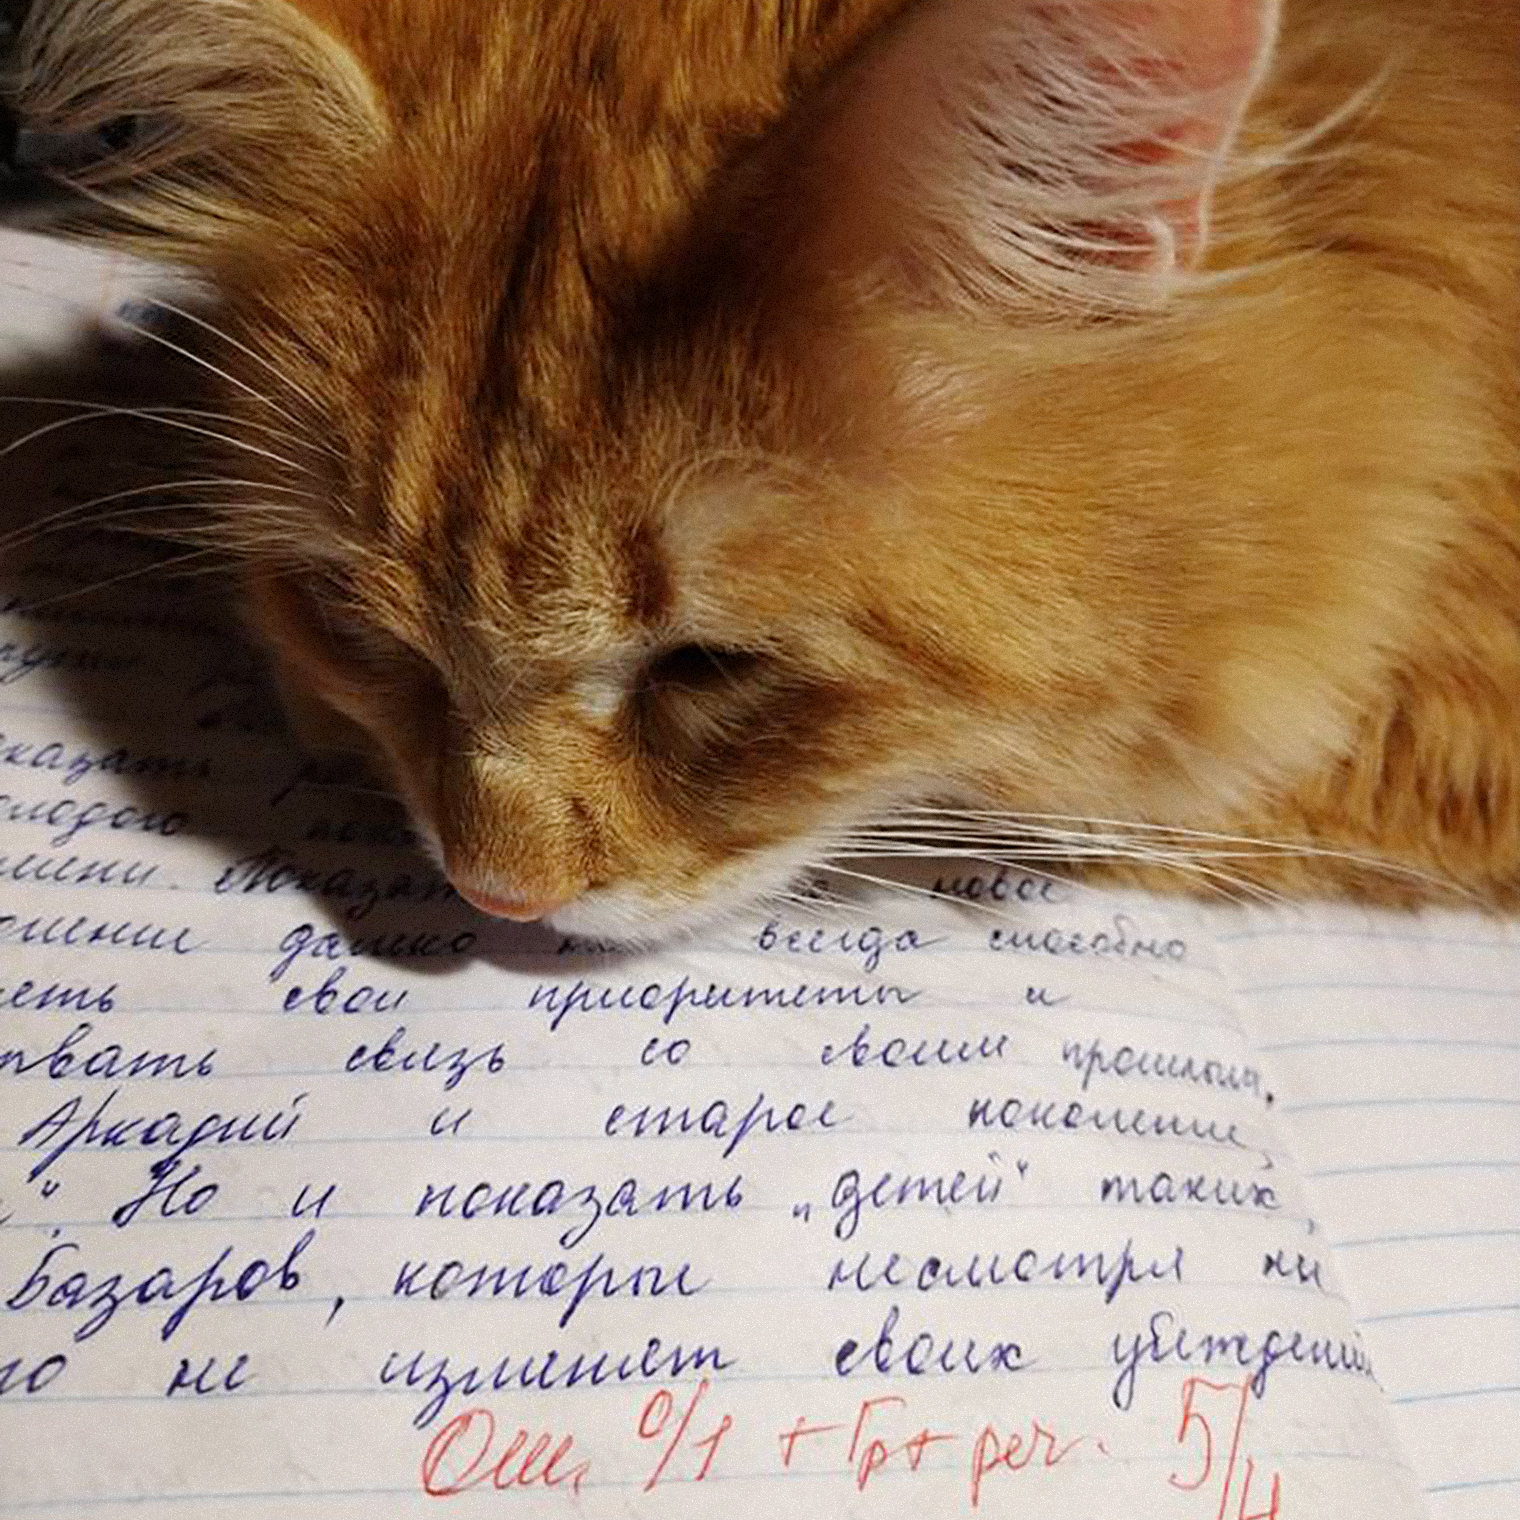 казать
молодого
Показать новое
далеко не всегда способно
свои приоритеты и
рвать связь со своим прошлым.
Аркадий и старое поколение,
". Но и показать „детей" таких,
Базаров, которые несмотря ни
го не изменят своих убеждений.
Ош. 0/1 + Гр + реч. 5/4